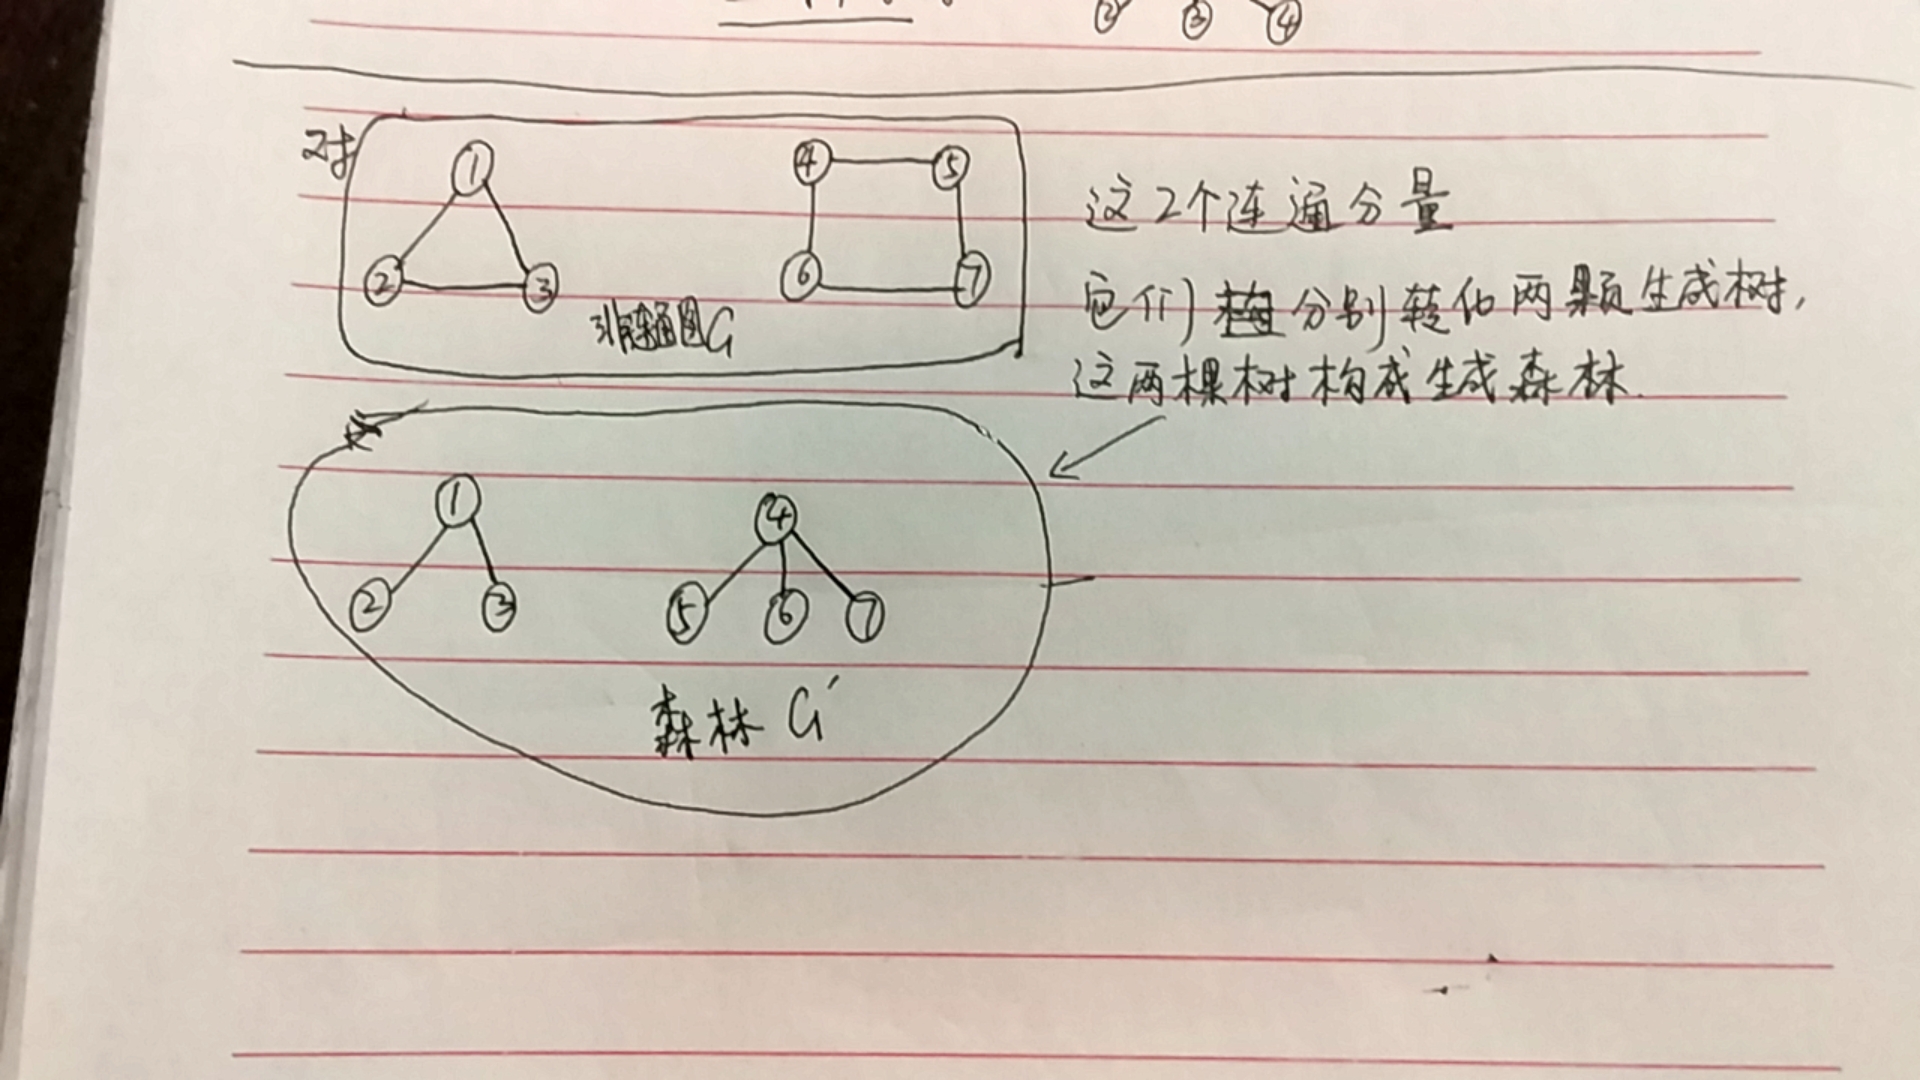 ② ③ ④
对
① ④ ⑤
② ③ ⑥ ⑦
非连通图G
这2个连通分量
它们分别转化两颗生成树,
这两棵树构成生成森林.
① ④
② ③ ⑤ ⑥ ⑦
森林 G′